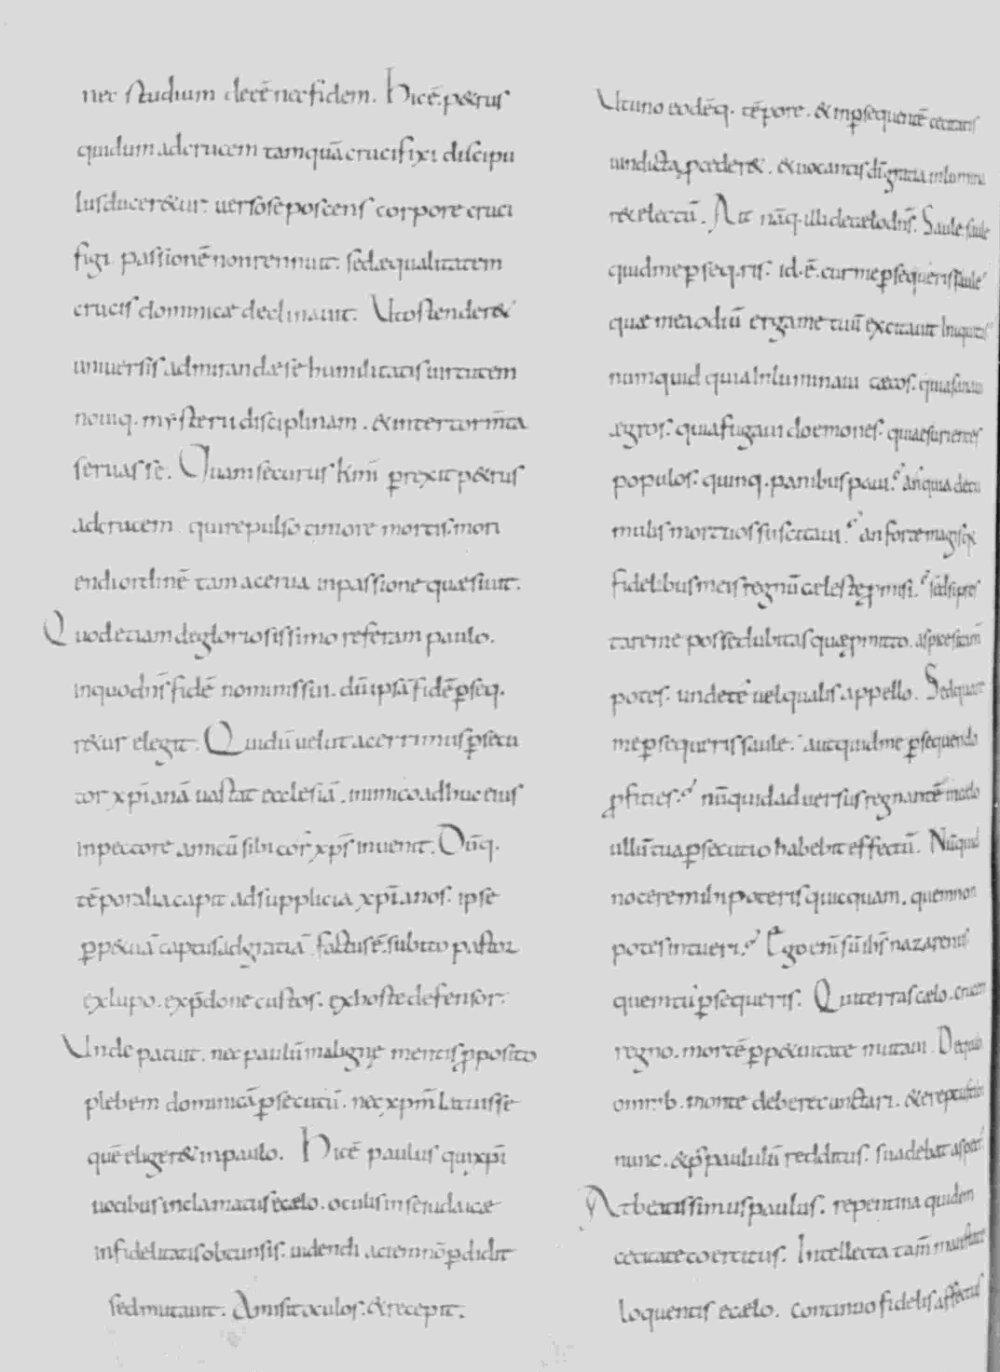 nec studium decē nec fidem. Hic ē. p&rus
qui dum ad crucem tamquā crucifixi discipu
lus ducer&ur. uerso se poscens corpore cruci
figi passionē non rennuit. sed æqualitatem
crucis dominicæ declinauit. Ut ostender&
uniuersis admirandæ se humilitatis uirtutem
nouiq. mysterii disciplinam. & inter torm̄ta
seruasse. Quam securus perrexit p&rus
ad crucem qui repulso timore mortis. mori
endi ordinē tam acerua in passione quæsiuit.
Quod etiam de gloriosissimo referam paulo.
in quo dn̄s fidē nominis sui. dū ipsā fidē p̄seq.
r&ur elegit. Qui dū uelut acerrimus p̄secu
tor xp̄ianā uastat ecclesiā. inimico adhuc eius
in pectore amicū sibi cor xp̄s inuenit. Dūq.
tēporalia capit ad supplicia xp̄ianos. ipse
p̄p&uā captus ad gratiā. factus ē. subito pastor
ex lupo. ex p̄done custos. ex hoste defensor.
Unde patuit. nec paulū malignę mentis p̄posito
plebem dominicā p̄secutū. nec xp̄m latuisse
quē eliger& in paulo. Hic ē paulus qui xp̄i
uocibus inclamatus e cælo. oculis in se iudaicæ
infidelitatis obtunsis. uidendi aciem nō p̄didit
sed mutauit. Amisit oculos. & recepit.
Ut uno eodēq. tēpore. & in p̄sequentē cecitatis
uindicta p̄ceder&. & uocantis dī gratia in lumine
r& electū. Ait nāq. illi de cælo dn̄s. Saule saule
quid me p̄seq.ris. id. ē. cur me p̄sequeris saule
quæ mea odiū erga me tuū excitauit iniquitas
numquid quia inluminaui cæcos. quia sanaui
ægros. quia fugaui doemones. quia esurientes
populos. quinq. panibus paui. an quia de tu
mulis mortuos suscitaui. an forte magis q
fidelibus meis regnū cæleste p̄misi. sed si præs
tare me posse dubitas quæ p̄mitto. aspice si tam̄
potes. unde te uel qualis appello. Sed quare
me p̄sequeris saule. aut quid me p̄sequendo
p̄ficies. nūquid aduersus regnantē in cælo
ullū tua p̄secutio habebit effectū. Nūquid
nocere mihi poteris quicquam. quem non
potes intueri. Ego enī sū ih̄s nazarenus
quem tu p̄sequeris. Qui terras cælo. crucem
regno. mortē p̄p&uitate mutaui.
omnib. monte debere cunctari. &
nunc. & p̄ paululū redditus. suadebat
At beatissimus paulus. repentina quidem
cecitate coercitus. Intellecta tam̄
loquentis e cælo. continuo fidelis affectus